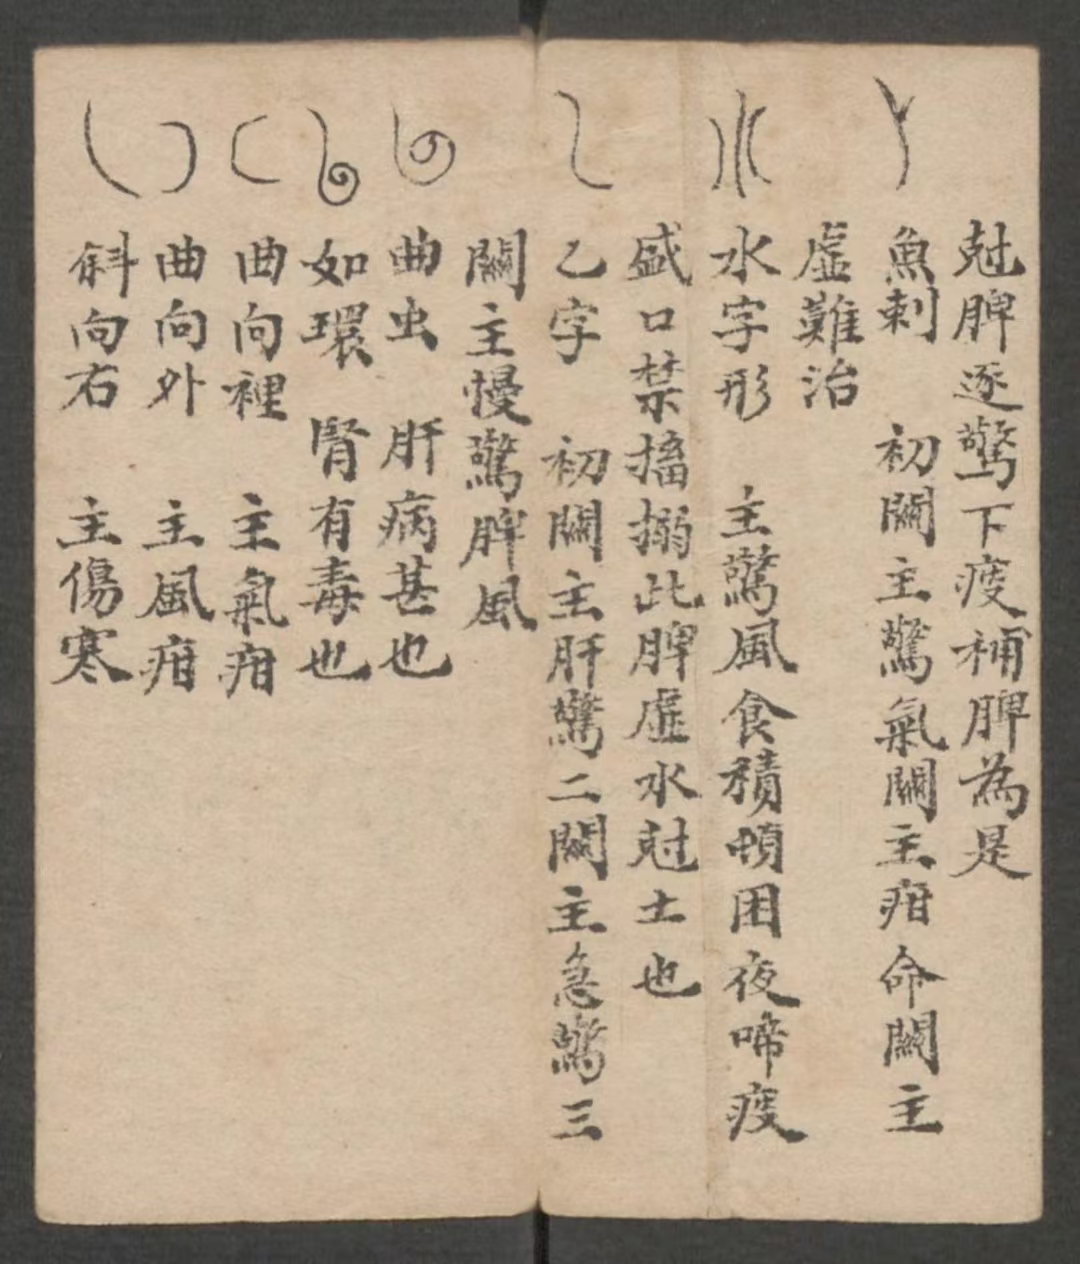 尅脾逐驚下痰補脾為是
魚刺　初關主驚氣關主疳命關主
虛難治
水字形　主驚風食積頓困夜啼痰
盛口禁搐搦此脾虛水尅土也
乙字　初關主肝驚二關主急驚三
關主慢驚脾風
曲虫　肝病甚也
如環　腎有毒也
曲向裡　主氣疳
曲向外　主風疳
斜向右　主傷寒